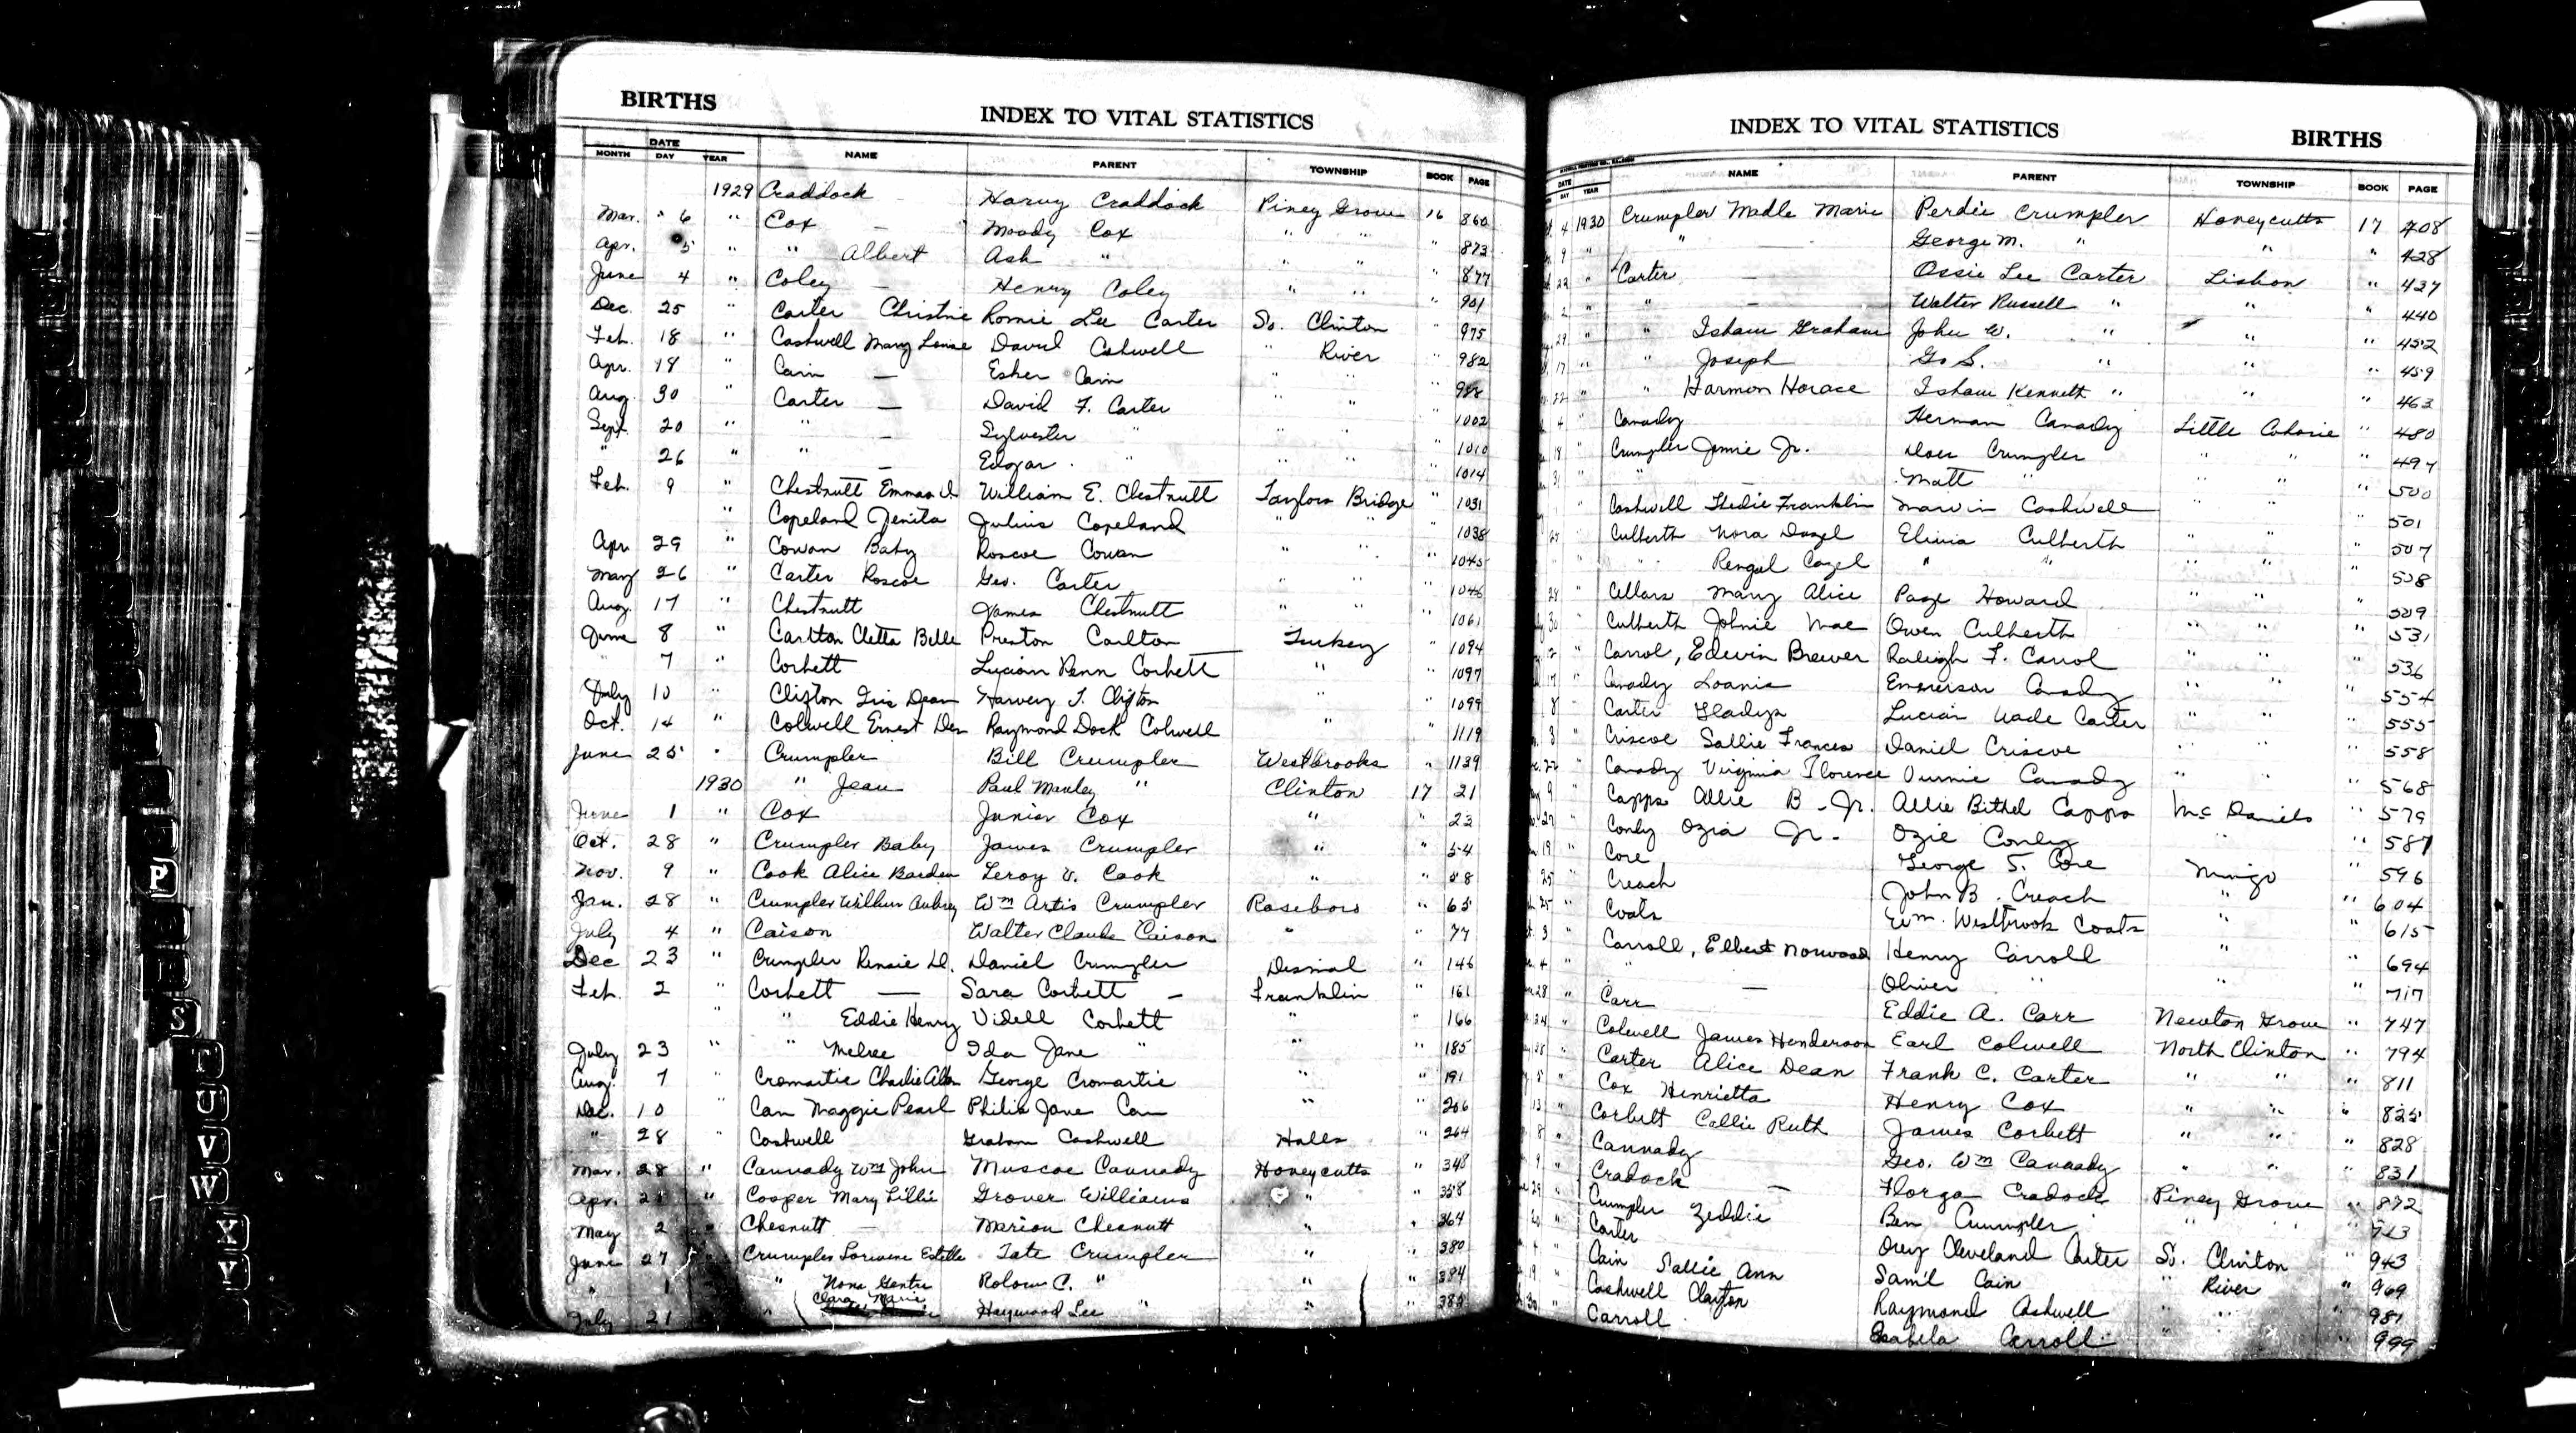 BIRTHS
INDEX TO VITAL STATISTICS
DATE
MONTH DAY YEAR NAME PARENT TOWNSHIP BOOK PAGE
1929 Craddock Harvy Craddock Piney Grove 16 860
Mar. 6 " Cox — Moody Cox " " " 873
Apr. 5 " " Albert Ash " " " " 877
June 4 " Coley — Henry Coley " " " 901
Dec. 25 " Carter Christine Romie Lee Carter So. Clinton " 975
Feb. 18 " Cashwell Mary Louise David Cashwell " River " 982
Apr. 18 " Cain — Esker Cain " " "
Aug. 30 " Carter — David F. Carter " " " 1002
Sept. 20 " " — Sylvester " " " " 1010
" 26 " " — Edgar " " " " 1014
Feb. 9 " Chestnutt Emma William E. Chestnutt Taylors Bridge " 1031
" Copeland Jenita Julius Copeland " " " 1038
Apr. 29 " Cowan Baby Roscoe Cowan " " " 1045
May 26 " Carter Roscoe Geo. Carter " " " 1046
Aug. 17 " Chestnutt James Chestnutt " " " 1061
June 8 " Carlton Cletta Belle Preston Carlton Turkey " 1094
" 7 " Corbett Lucian Penn Corbett " " 1097
July 10 " Clifton Iris Dean Harvey T. Clifton " " 1099
Oct. 14 " Colwell Ernest Raymond Dock Colwell " " 1119
June 25 " Crumpler Bill Crumpler Westbrooks " 1139
1930 " Jean Paul Manley " Clinton 17 21
June 1 " Cox Junior Cox " " 23
Oct. 28 " Crumpler Baby James Crumpler " " 54
Nov. 9 " Cook Alice Barden Leroy V. Cook " "
Jan. 28 " Crumpler Wilbur Aubrey Wm Artis Crumpler Roseboro " 65
July 4 " Caison Walter Claude Caison " " 77
Dec 23 " Crumpler Rensie D. Daniel Crumpler Dismal " 146
Feb. 2 " Corbett — Sara Corbett — Franklin " 161
" " Eddie Henry Videll Corbett " " 166
July 23 " " Melree Ida Jane " " " 185
Aug. 7 " Cromartie Charlie George Cromartie " " 191
Dec. 10 " Can Maggie Pearl Philis Jane Can " " 206
" 28 " Cashwell Graham Cashwell Halls " 264
Mar. 28 " Cannady Wm John Muscoe Cannady Honeycutts " 348
Apr. 21 " Cooper Mary Lillie Grover Williams " " 358
May 2 " Chesnutt — Marion Chesnutt " " 364
June 27 " Crumpler Lorraine Estelle Tate Crumpler " " 380
" 1 " Nona Gentry Roland C. " " " 384
Clara Marie
July 21 " Haywood Lee " " "
INDEX TO VITAL STATISTICS
BIRTHS
DATE
DAY YEAR NAME PARENT TOWNSHIP BOOK PAGE
4 1930 Crumpler Madle Marie Perdie Crumpler Honeycutts 17 408
9 " " — George M. " " " 428
22 " Carter — Ossie Lee Carter Lisbon " 437
2 " " — Walter Russell " " " 440
29 " " Isham Graham John W. " " " 452
17 " " Joseph Go S. " " " 459
22 " " Harmon Horace Isham Kenneth " " " 463
4 " Canady Herman Canady Little Coharie " 480
18 " Crumpler Jamie Jr. Crumpler " " " 497
" — Matt " " " " 500
Cashwell Franklin Marvin Cashwell " " " 501
25 " Culbreth Nora Dazel Elivia Culbreth " " " 507
" " Rengal Cazel " " " " " 508
28 " Cellars Mary Alice Page Howard " " " 509
30 " Culbreth Johnie Mae Owen Culbreth " " " 531
12 " Carrol, Edwin Brewer Raleigh F. Carrol " " " 536
17 " Canady Loania Emmerson Canady " " " 554
8 " Carter Gladys Lucian Wade Carter " " " 555
3 " Criscoe Sallie Frances Daniel Criscoe " " " 558
22 " Canady Virginia Florence Canady " " " 568
9 " Capps Allie B. Jr. Allie Bithel Capps Mc Daniels " 579
27 " Conly Ozia Jr. Ozie Conly " " 587
19 " Core George S. Core Mingo " 596
25 " Creach John B. Creach " " 604
25 " Coats Wm. Westbrook Coats " " 615
3 " Carroll, Elbert Norwood Henry Carroll " " 694
4 " " — Oliver " " " 717
28 " Carr Eddie A. Carr Newton Grove " 747
24 " Colwell James Henderson Earl Colwell North Clinton " 794
28 " Carter Alice Dean Frank C. Carter " " " 811
5 " Cox Henrietta Henry Cox " " " 825
13 " Corbett Callie Ruth James Corbett " " " 828
8 " Cannady Geo. Wm Cannady " " " 831
9 " Cradock — Florga Cradock Piney Grove " 872
29 " Crumpler Zeddie Ben Crumpler " " "
" Carter Cleveland Carter So. Clinton 943
4 " Cain Sallie Ann Sam'l Cain " River " 969
19 " Cashwell Clayton Raymond Cashwell " " " 981
30 " Carroll Isabela Carroll " " " 999
P
S
T
U
V
W
X
Y